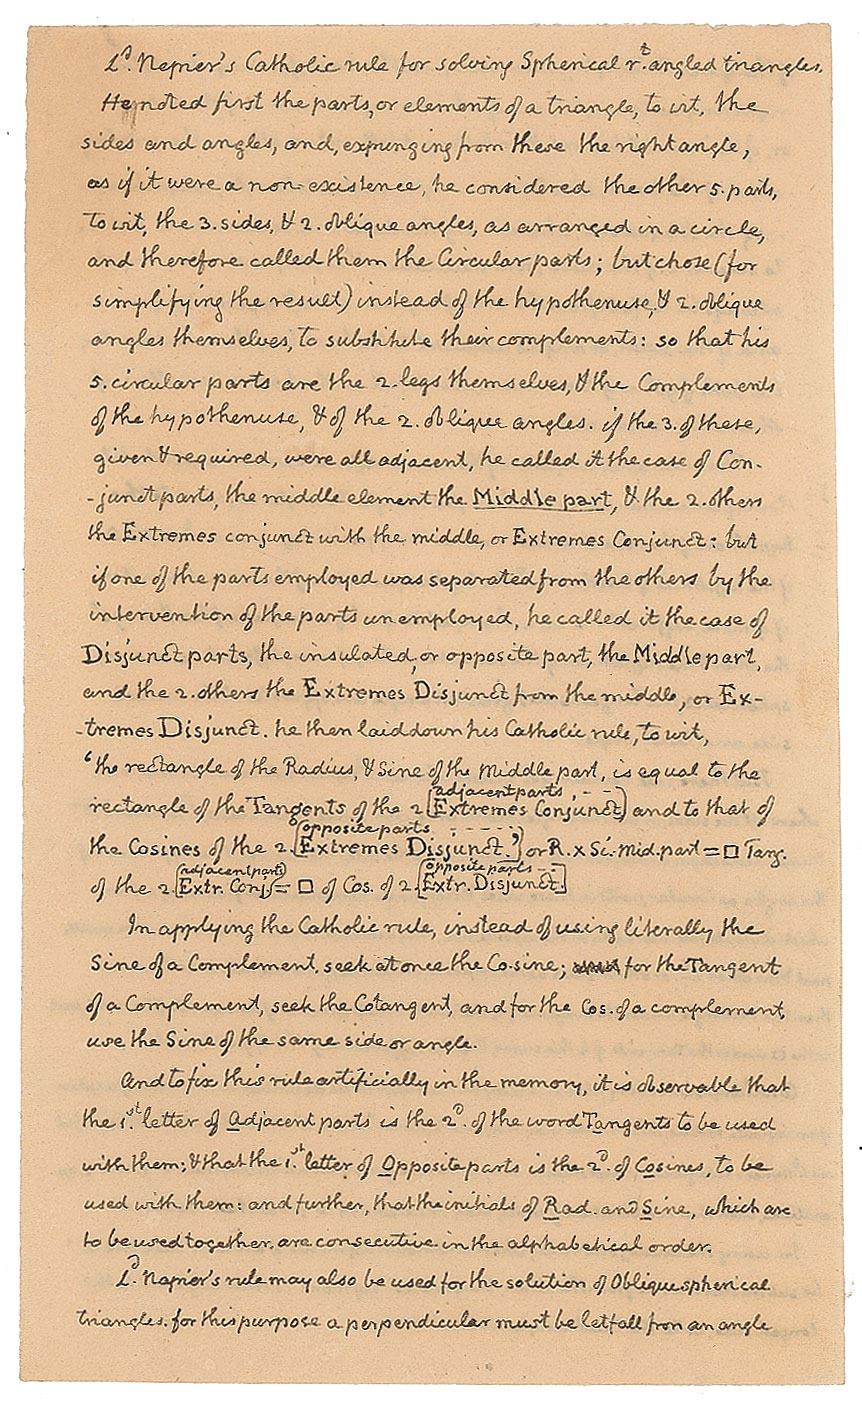 Ld. Nepier's Catholic rule for solving Spherical rt. angled triangles.
He noted first the parts, or elements of a triangle, to wit, the
sides and angles, and, expunging from these the right angle,
as if it were a non-existence, he considered the other 5. parts,
to wit, the 3. sides, & 2. oblique angles, as arranged in a circle,
and therefore called them the Circular parts; but chose (for
simplifying the result) instead of the hypothenuse, & 2. oblique
angles themselves, to substitute their complements: so that his
5. circular parts are the 2. legs themselves, & the Complements
of the hypothenuse, & of the 2. oblique angles. if the 3. of these,
given & required, were all adjacent, he called it the case of Con-
-junct parts, the middle element the Middle part, & the 2. others
the Extremes conjunct with the middle, or Extremes Conjunct: but
if one of the parts employed was separated from the others by the
intervention of the parts unemployed, he called it the case of
Disjunct parts, the insulated, or opposite part, the Middle part,
and the 2. others the Extremes Disjunct from the middle, or Ex-
-tremes Disjunct. he then laid down his Catholic rule, to wit,
'the rectangle of the Radius, & Sine of the Middle part, is equal to the
adjacent parts, - -
rectangle of the Tangents of the 2 [Extremes Conjunct] and to that of
opposite parts - - - - -
the Cosines of the 2. [Extremes Disjunct.'] or R. x Si. Mid. part = □ Tang.
adjacent part opposite parts - -
of the 2. [Extr. Conj.] = □ of Cos. of 2. [Extr. Disjunct.]
In applying the Catholic rule, instead of using literally the
Sine of a Complement, seek at once the Co-sine; for the Tangent
of a Complement, seek the Cotangent, and for the Cos. of a complement,
use the Sine of the same side or angle.
And to fix this rule artificially in the memory, it is observable that
the 1.st letter of Adjacent parts is the 2d. of the word Tangents to be used
with them; & that the 1.st letter of Opposite parts is the 2d. of Cosines, to be
used with them: and further, that the initials of Rad. and Sine, which are
to be used together, are consecutive in the alphabetical order.
Ld. Napier's rule may also be used for the solution of Oblique spherical
triangles. for this purpose a perpendicular must be let fall from an angle